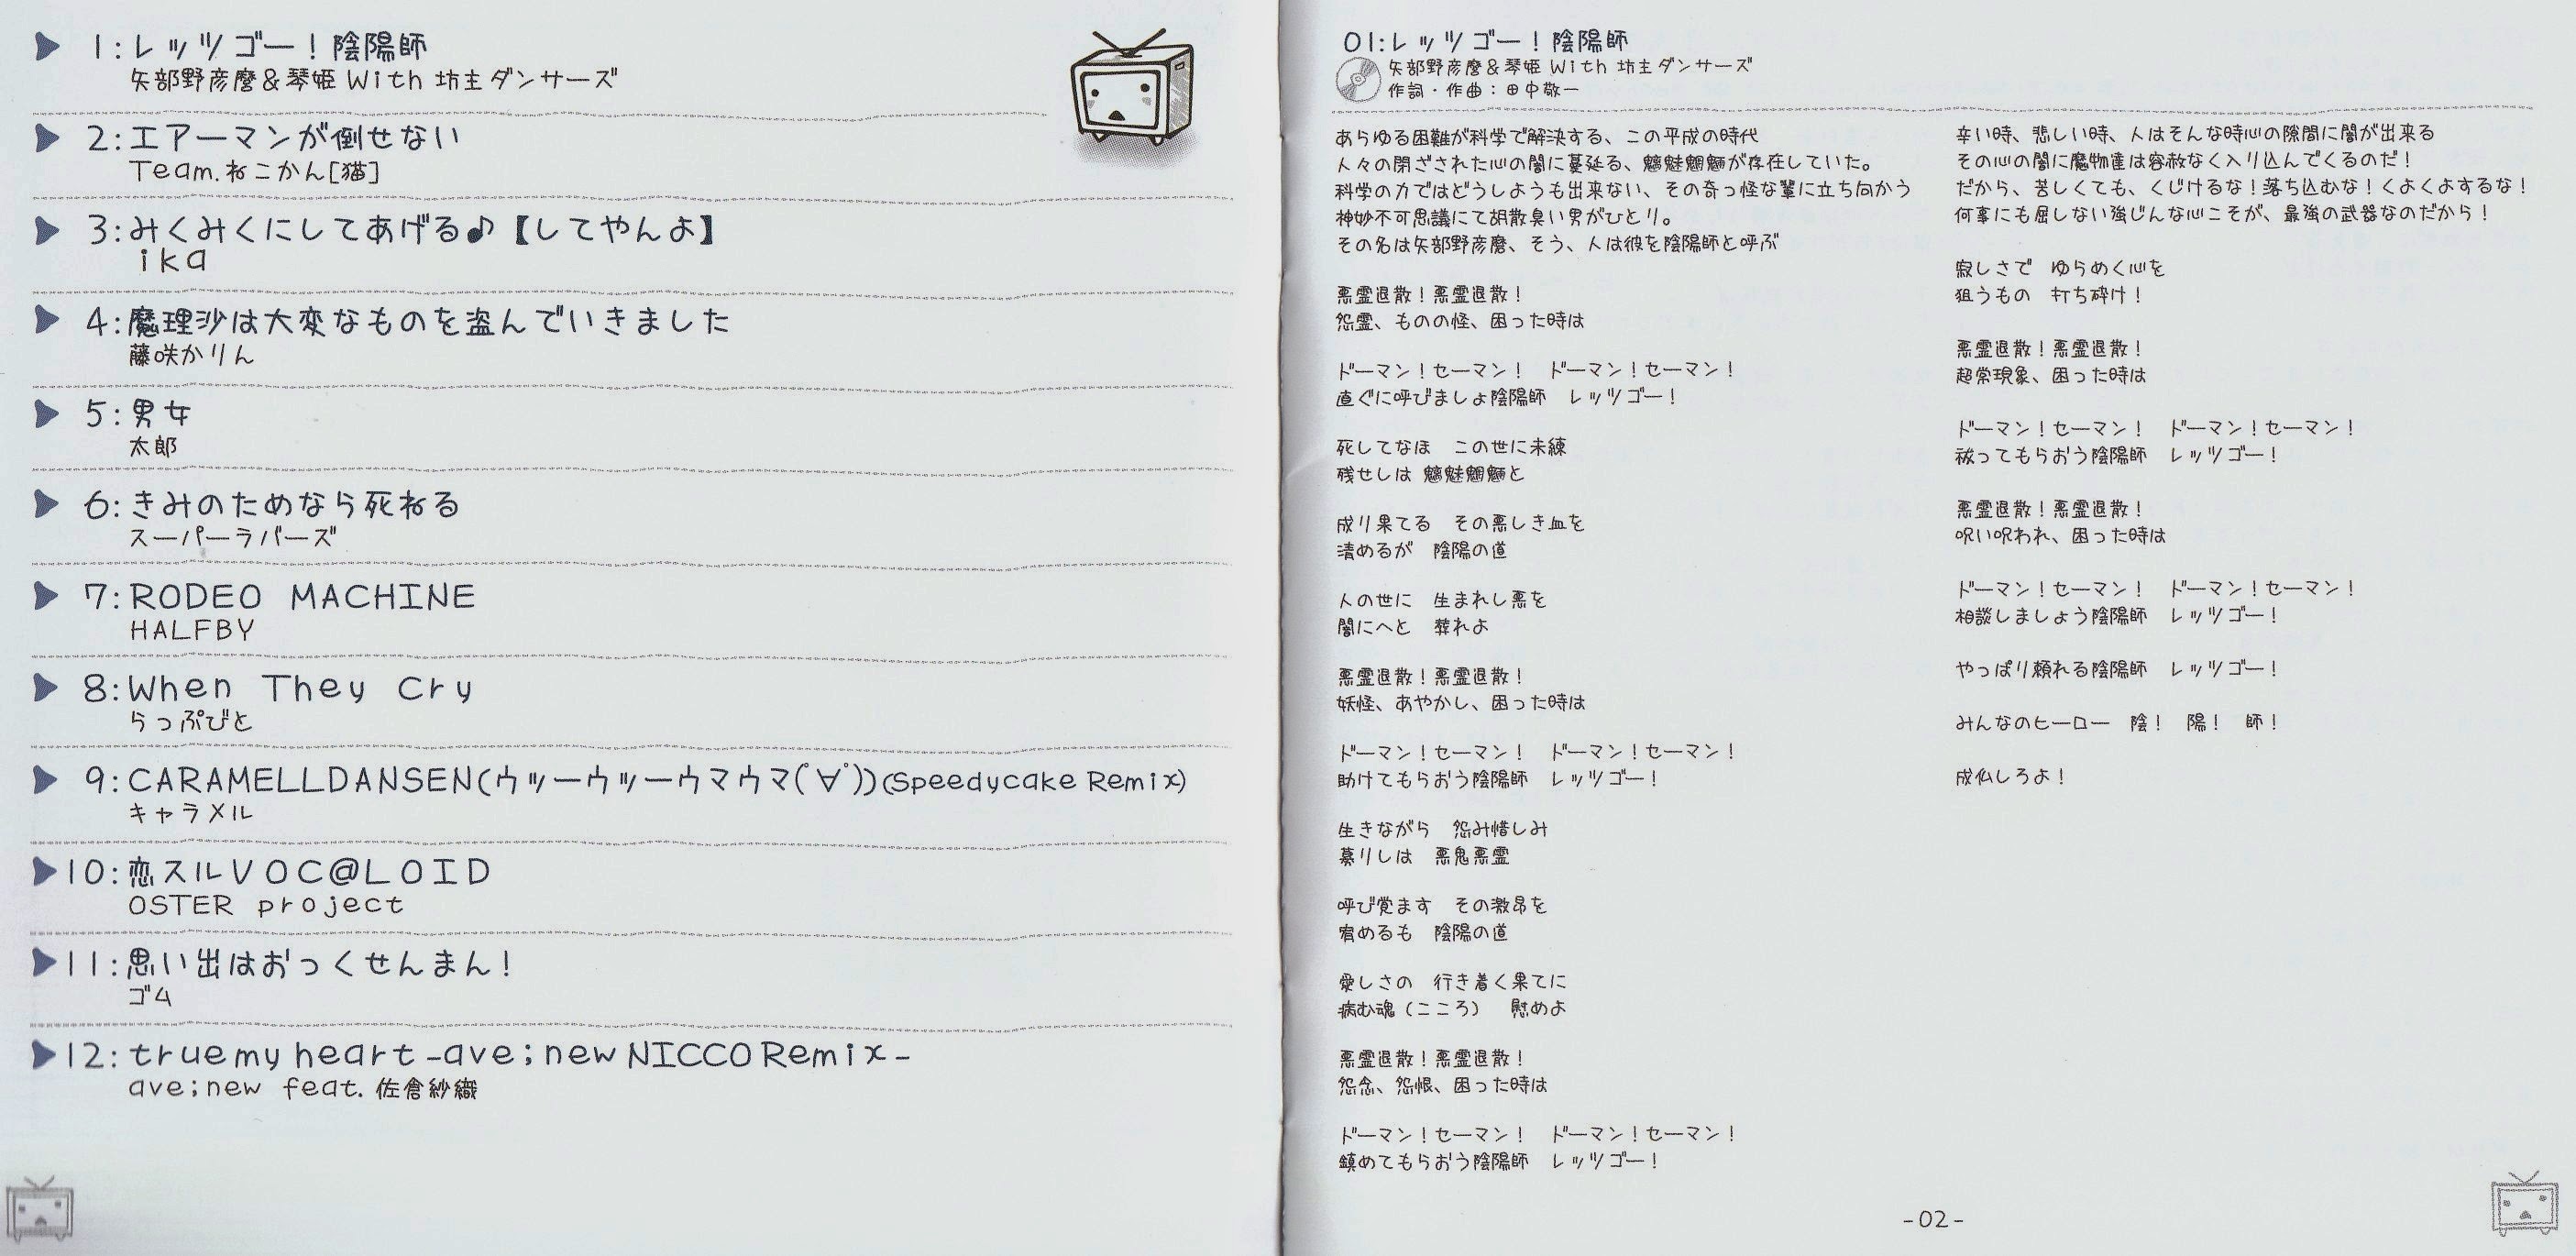 1:レッツゴー！陰陽師
矢部野彦麿＆琴姫 With 坊主ダンサーズ
2:エアーマンが倒せない
Team.ねこかん[猫]
3:みくみくにしてあげる♪【してやんよ】
ika
4:魔理沙は大変なものを盗んでいきました
藤咲かりん
5:男女
太郎
6:きみのためなら死ねる
スーパーラバーズ
7:RODEO MACHINE
HALFBY
8:When They Cry
らっぷびと
9:CARAMELLDANSEN(ウッーウッーウマウマ(ﾟ∀ﾟ))(Speedycake Remix)
キャラメル
10:恋スルVOC@LOID
OSTER project
11:思い出はおっくせんまん！
ゴム
12:true my heart -ave;new NICCO Remix-
ave;new feat. 佐倉紗織
01:レッツゴー！陰陽師
矢部野彦麿＆琴姫 With 坊主ダンサーズ
作詞・作曲：田中敬一
あらゆる困難が科学で解決する、この平成の時代
人々の閉ざされた心の闇に蔓延る、魑魅魍魎が存在していた。
科学の力ではどうしようも出来ない、その奇っ怪な輩に立ち向かう
神妙不可思議にて胡散臭い男がひとり。
その名は矢部野彦麿、そう、人は彼を陰陽師と呼ぶ
悪霊退散！悪霊退散！
怨霊、ものの怪、困った時は
ドーマン！セーマン！　ドーマン！セーマン！
直ぐに呼びましょ陰陽師　レッツゴー！
死してなほ　この世に未練
残せしは 魑魅魍魎と
成り果てる　その悪しき血を
清めるが　陰陽の道
人の世に　生まれし悪を
闇にへと　葬れよ
悪霊退散！悪霊退散！
妖怪、あやかし、困った時は
ドーマン！セーマン！　ドーマン！セーマン！
助けてもらおう陰陽師　レッツゴー！
生きながら　怨み惜しみ
募りしは　悪鬼悪霊
呼び覚ます　その激昂を
宥めるも　陰陽の道
愛しさの　行き着く果てに
病む魂（こころ）　慰めよ
悪霊退散！悪霊退散！
怨念、怨恨、困った時は
ドーマン！セーマン！　ドーマン！セーマン！
鎮めてもらおう陰陽師　レッツゴー！
辛い時、悲しい時、人はそんな時心の隙間に闇が出来る
その心の闇に魔物達は容赦なく入り込んでくるのだ！
だから、苦しくても、くじけるな！落ち込むな！くよくよするな！
何事にも屈しない強じんな心こそが、最強の武器なのだから！
寂しさで　ゆらめく心を
狙うもの　打ち砕け！
悪霊退散！悪霊退散！
超常現象、困った時は
ドーマン！セーマン！　ドーマン！セーマン！
祓ってもらおう陰陽師　レッツゴー！
悪霊退散！悪霊退散！
呪い呪われ、困った時は
ドーマン！セーマン！　ドーマン！セーマン！
相談しましょう陰陽師　レッツゴー！
やっぱり頼れる陰陽師　レッツゴー！
みんなのヒーロー　陰！　陽！　師！
成仏しろよ！
-02-